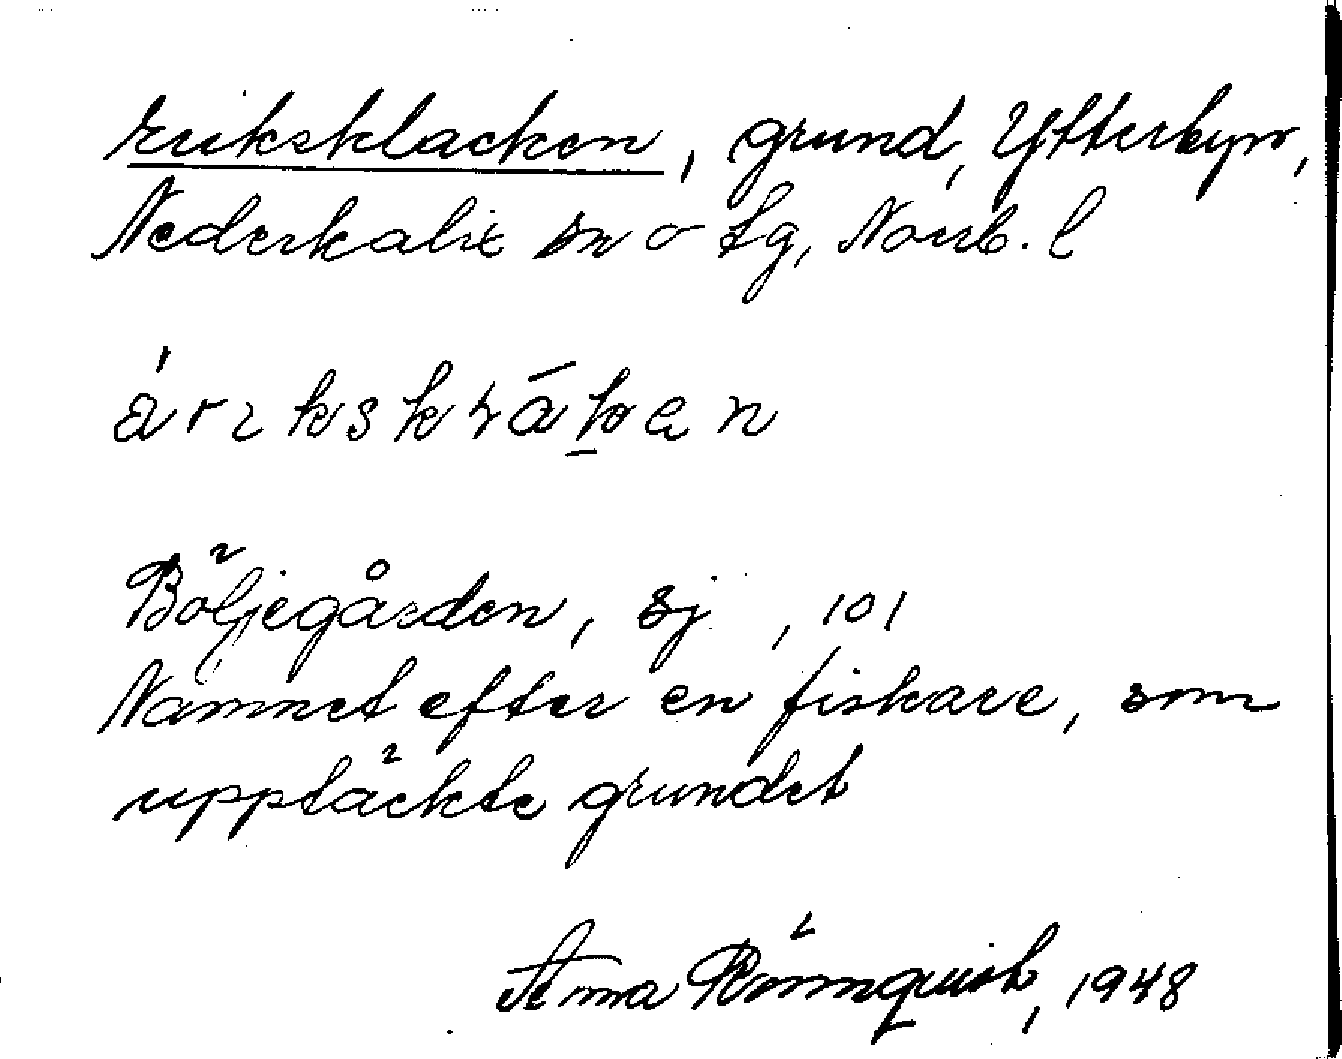 Eriksklacken, grund, Ytterbyn,
Nederkalix sn o tg, Norrb. l
Böljegården, sj , 101
Namnet efter en fiskare, som
upptäckte grundet
Anna Rönnquist, 1948